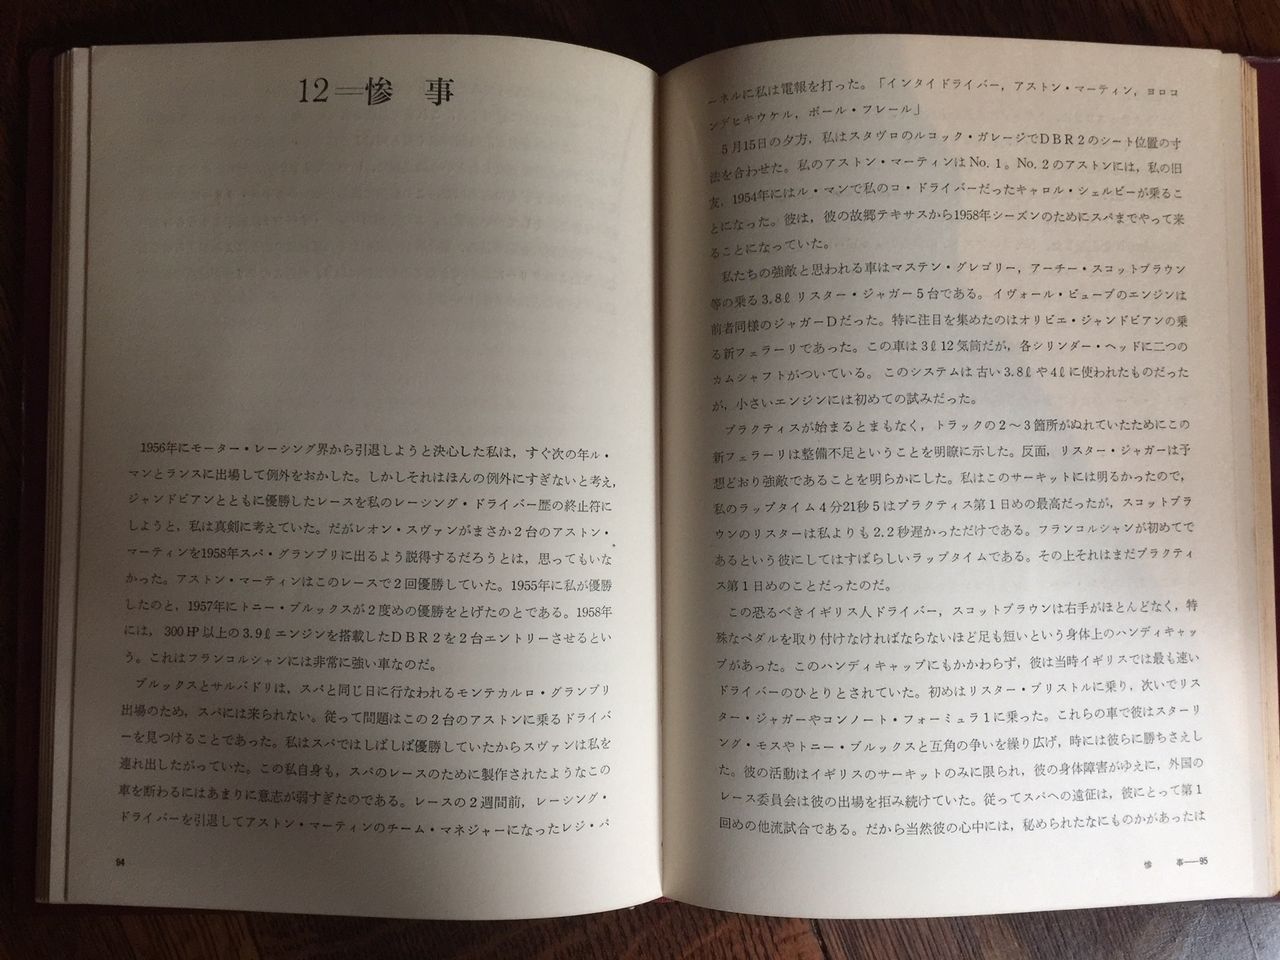 12＝惨　事
1956年にモーター・レーシング界から引退しようと決心した私は，すぐ次の年ル・
マンとランスに出場して例外をおかした。しかしそれはほんの例外にすぎないと考え，
ジャンドビアンとともに優勝したレースを私のレーシング・ドライバー歴の終止符に
しようと，私は真剣に考えていた。だがレオン・スヴァンがまさか２台のアストン・
マーティンを1958年スパ・グランプリに出るよう説得するだろうとは，思ってもいな
かった。アストン・マーティンはこのレースで２回優勝していた。1955年に私が優勝
したのと，1957年にトニー・ブルックスが２度めの優勝をとげたのとである。1958年
には，300HP以上の3.9ℓエンジンを搭載したＤＢＲ２を２台エントリーさせるとい
う。これはフランコルシャンには非常に強い車なのだ。
ブルックスとサルバドリは，スパと同じ日に行なわれるモンテカルロ・グランプリ
出場のため，スパには来られない。従って問題はこの２台のアストンに乗るドライバ
ーを見つけることであった。私はスパではしばしば優勝していたからスヴァンは私を
連れ出したがっていた。この私自身も，スパのレースのために製作されたようなこの
車を断わるにはあまりに意志が弱すぎたのである。レースの２週間前，レーシング・
ドライバーを引退してアストン・マーティンのチーム・マネジャーになったレジ・パ
94
ーネルに私は電報を打った。「インタイドライバー，アストン・マーティン，ヨロコ
ンデヒキウケル，ポール・フレール」
５月15日の夕方，私はスタヴロのルコック・ガレージでＤＢＲ２のシート位置の寸
法を合わせた。私のアストン・マーティンはNo.１。No.２のアストンには，私の旧
友，1954年にはル・マンで私のコ・ドライバーだったキャロル・シェルビーが乗るこ
とになった。彼は，彼の故郷テキサスから1958年シーズンのためにスパまでやって来
ることになっていた。
私たちの強敵と思われる車はマステン・グレゴリー，アーチー・スコットブラウン
等の乗る3.8ℓリスター・ジャガー５台である。イヴォール・ビューブのエンジンは
前者同様のジャガーＤだった。特に注目を集めたのはオリビエ・ジャンドビアンの乗
る新フェラーリであった。この車は３ℓ12気筒だが，各シリンダー・ヘッドに二つの
カムシャフトがついている。このシステムは古い3.8ℓや４ℓに使われたものだった
が，小さいエンジンには初めての試みだった。
プラクティスが始まるとまもなく，トラックの２～３箇所がぬれていたためにこの
新フェラーリは整備不足ということを明瞭に示した。反面，リスター・ジャガーは予
想どおり強敵であることを明らかにした。私はこのサーキットには明るかったので，
私のラップタイム４分21秒５はプラクティス第１日めの最高だったが，スコットブラ
ウンのリスターは私よりも2.2秒遅かっただけである。フランコルシャンが初めてで
あるという彼にしてはすばらしいラップタイムである。その上それはまだプラクティ
ス第１日めのことだったのだ。
この恐るべきイギリス人ドライバー，スコットブラウンは右手がほとんどなく，特
殊なペダルを取り付けなければならないほど足も短いという身体上のハンディキャッ
プがあった。このハンディキャップにもかかわらず，彼は当時イギリスでは最も速い
ドライバーのひとりとされていた。初めはリスター・ブリストルに乗り，次いでリス
ター・ジャガーやコンノート・フォーミュラ１に乗った。これらの車で彼はスターリ
ング・モスやトニー・ブルックスと互角の争いを繰り広げ，時には彼らに勝ちさえし
た。彼の活動はイギリスのサーキットのみに限られ，彼の身体障害がゆえに，外国の
レース委員会は彼の出場を拒み続けていた。従ってスパへの遠征は，彼にとって第１
回めの他流試合である。だから当然彼の心中には，秘められたなにものかがあったは
惨　事——95